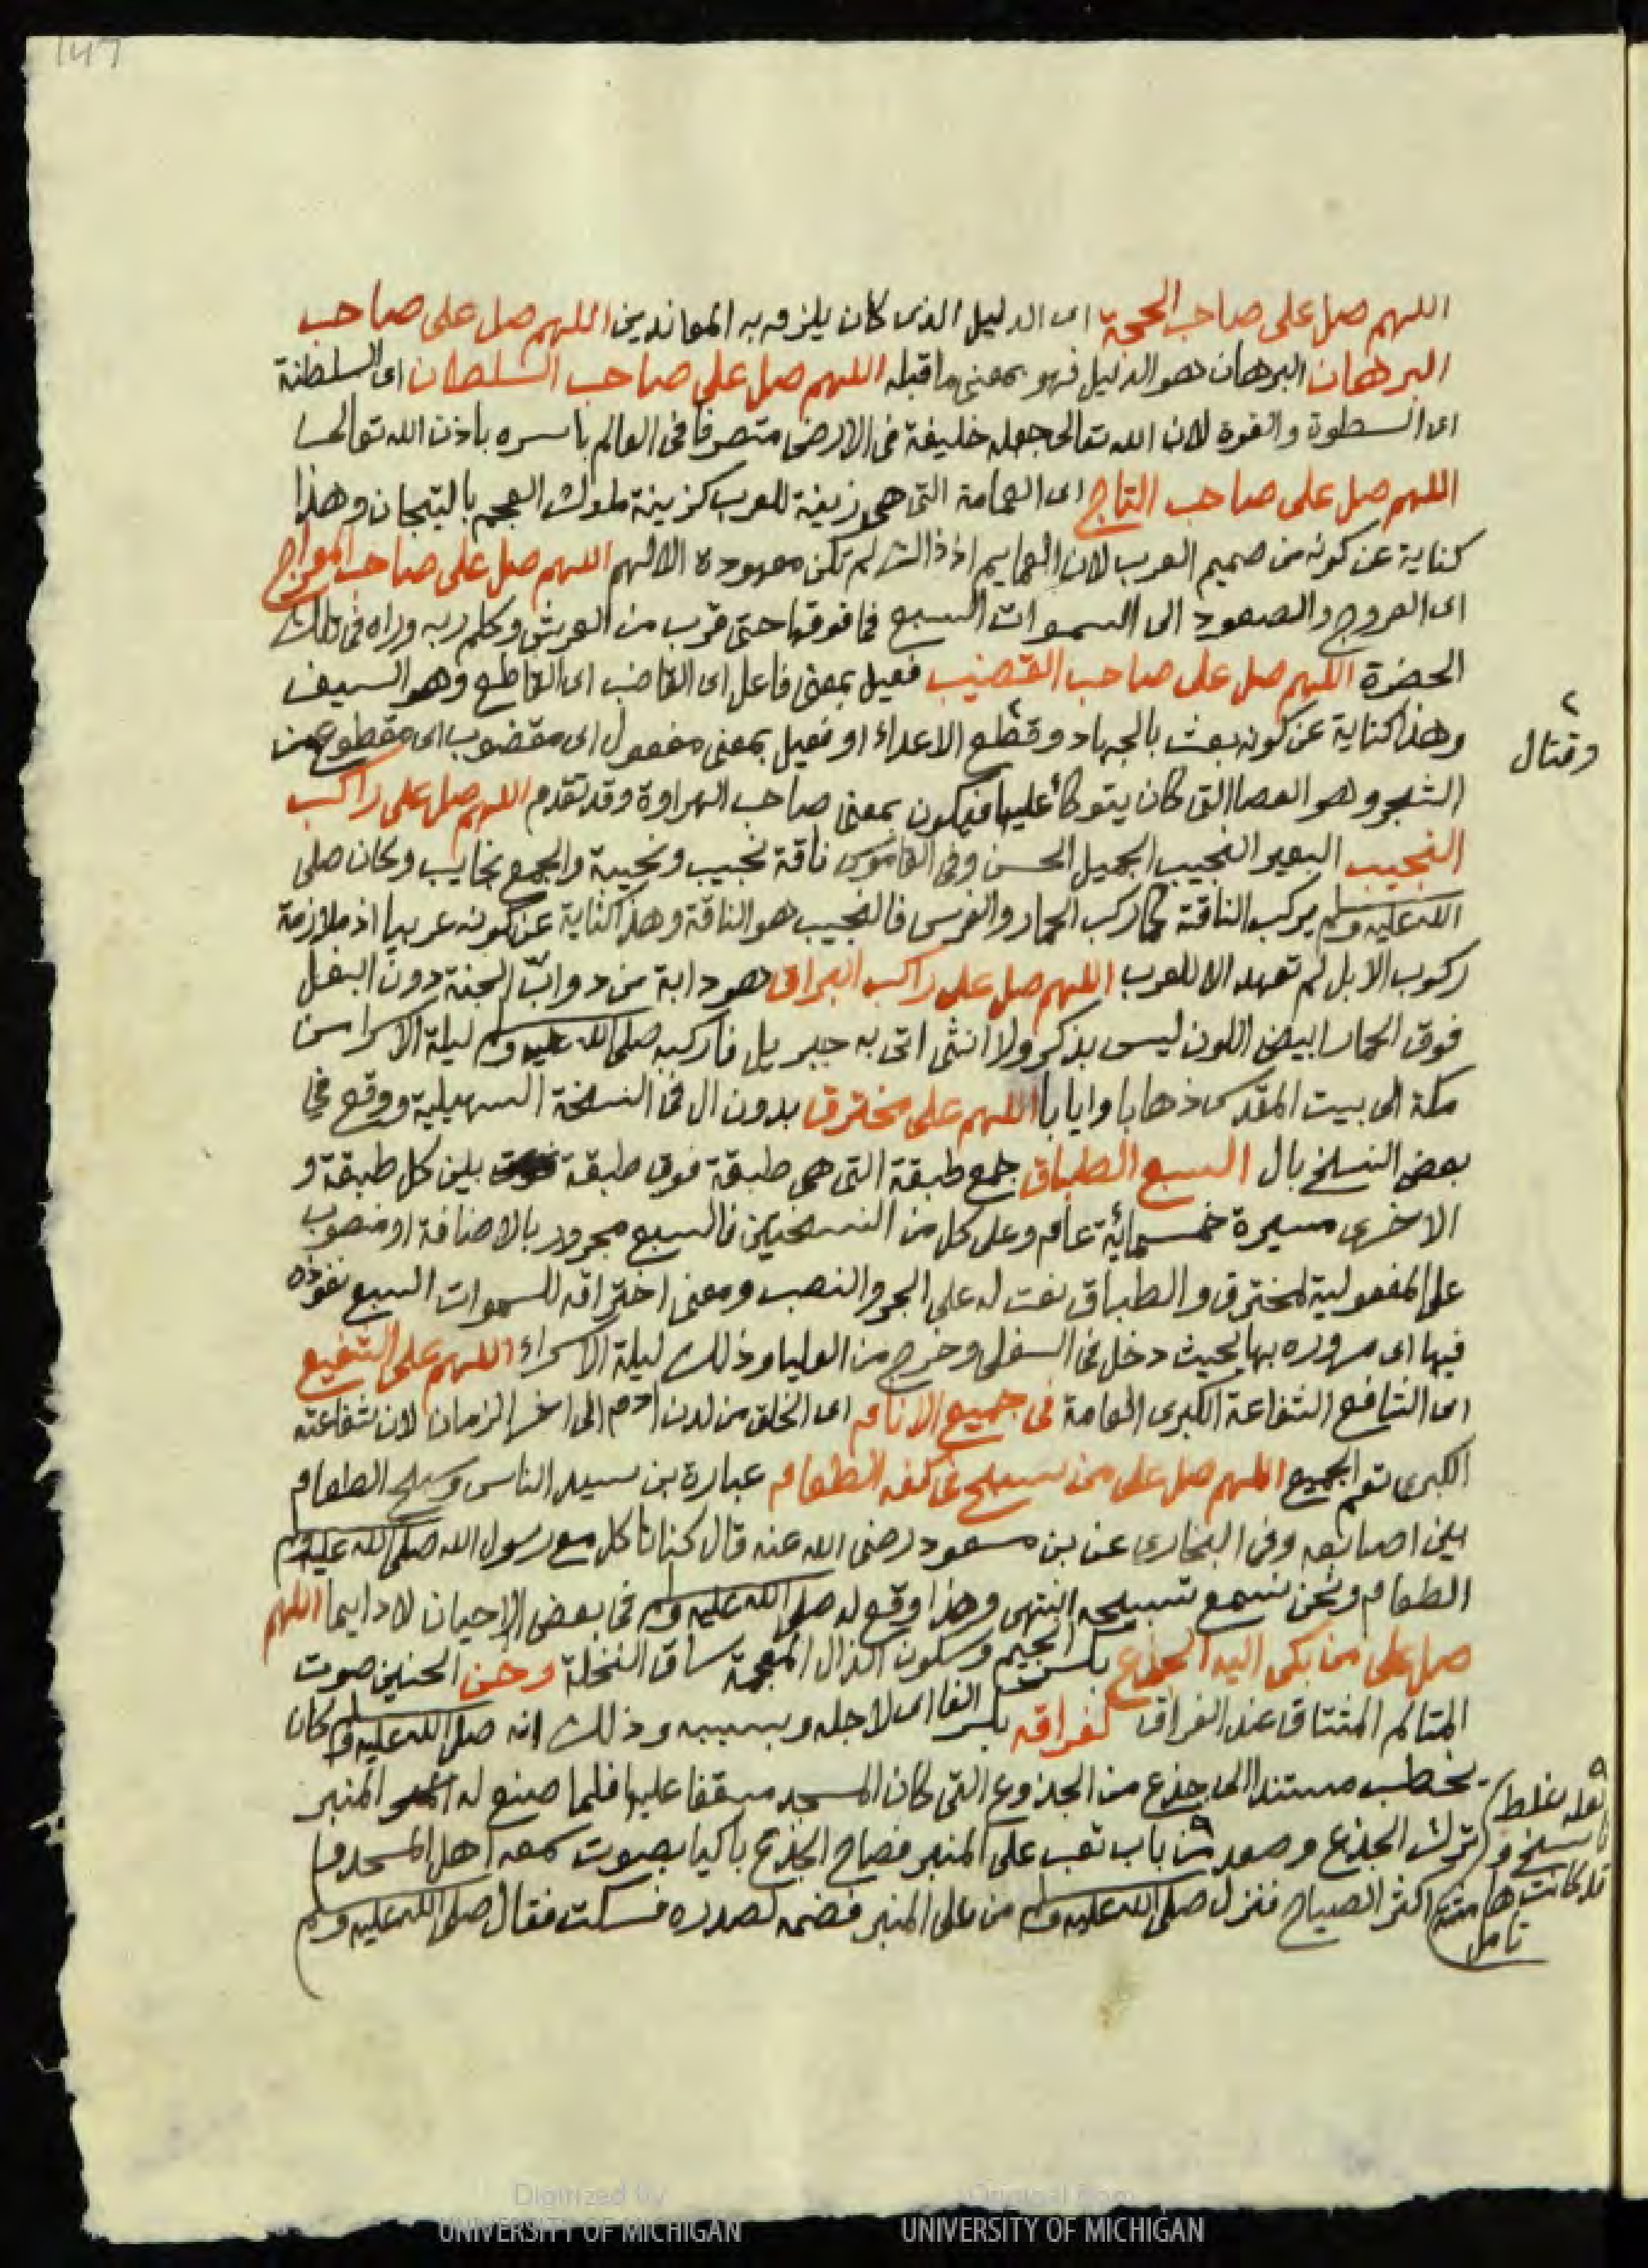 اللهم صل على صاحب الحجة اى الدليل الذى كان يلزم به المعاندين اللهم صل على صاحب
البرهان البرهان هو الدليل فهو بمعنى ما قبله اللهم صل على صاحب السلطان اى السلطنة
اى السطوة والقوة لان الله تعالى جعله خليفة فى الارض متصرفا فى العالم باسره باذن الله تعالى
اللهم صل على صاحب التاج اى العمامة التى هى زينة للعرب كزينة ملوك العجم بالتيجان وهذا
كناية عن كونه من صميم العرب لان العمايم اذ ذاك لم تكن معهودة الا لهم اللهم صل على صاحب المعراج
اى العروج والصعود الى السموات السبع فما فوقها حتى قرب من العرش وكلم ربه وراه فى تلك
الحضرة اللهم صل على صاحب القضيب فعيل بمعنى فاعل اى القاضب اى القاطع وهو السيف
وهذا كناية عن كونه بعث بالجهاد وقطع الاعداء او فعيل بمعنى مفعول اى مقضوب اى مقطوع من
وقتال
الشجر وهو العصا التى كان يتوكأ عليها فيكون بمعنى صاحب الهراوة وقد تقدم اللهم صل على راكب
النجيب البعير النجيب الجميل الحسن وفى القاموس ناقة نجيب ونجيبة والجمع نجايب وكان صلى
الله عليه وسلم يركب الناقة كما ركب الحمار والفرس فالنجيب هو الناقة وهذا كناية عن كونه عربيا اذ ملازمة
ركوب الابل لم تعهد الا للعرب اللهم صل على راكب البراق هو دابة من دواب الجنة دون البغل
فوق الحمار ابيض اللون ليس بذكر ولا انثى اتى به جبريل فاركبه صلى الله عليه وسلم ليلة الاسرا من
مكة الى بيت المقدس ذهابا وايابا اللهم على مخترق بدون ال فى النسخة السهيلية ووقع فى
بعض النسخ بال السبع الطباق جمع طبقة التى هى طبقة فوق طبقة بين كل طبقة و
الاخرى مسيرة خمسمائة عام وعلى كل من النسختين فالسبع مجرور بالاضافة او منصوب
على المفعولية لمخترق والطباق نعت له على الجر والنصب ومعنى اختراقه للسموات السبع نفوذه
فيها اى مروره بها بحيث دخل فى السفلى وخرج من العليا وذلك ليلة الاسراء اللهم على الشفيع
اى الشافع الشفاعة الكبرى العامة فى جميع الانام اى الخلق من لدن ادم الى اخر الزمان لان شفاعته
الكبرى تعم الجميع اللهم صل على من سبح فى كفه الطعام عبارة بن سيد الناس وسبح الطعام
بين اصابعه وفى البخارى عن بن مسعود رضى الله عنه قال كنا ناكل مع رسول الله صلى الله عليه وسلم
الطعام ونحن نسمع تسبيحه انتهى وهذا وقع له صلى الله عليه وسلم فى بعض الاحيان لا دايما اللهم
صل على من بكى اليه الجذع بكسر الجيم وسكون الذال المعجمة ساق النخلة وحن الحنين صوت
المتالم المشتاق عند الفراق لفراقه بكسر الفا اى لاجله وبسببه وذلك انه صلى الله عليه وسلم كان
يخطب مستندا الى جذع من الجذوع التى كان المسجد مسقفا عليها فلما صنع له المنبر
ترك الجذع وصعد من باب تعب على المنبر فصاح الجذع باكيا بصوت سمعه اهل المسجد
اكثر الصياح فنزل صلى الله عليه وسلم من على المنبر فضمه لصدره فسكت فقال صلى الله عليه وسلم
تامل
Digitized by
UNIVERSITY OF MICHIGAN
Original from
UNIVERSITY OF MICHIGAN